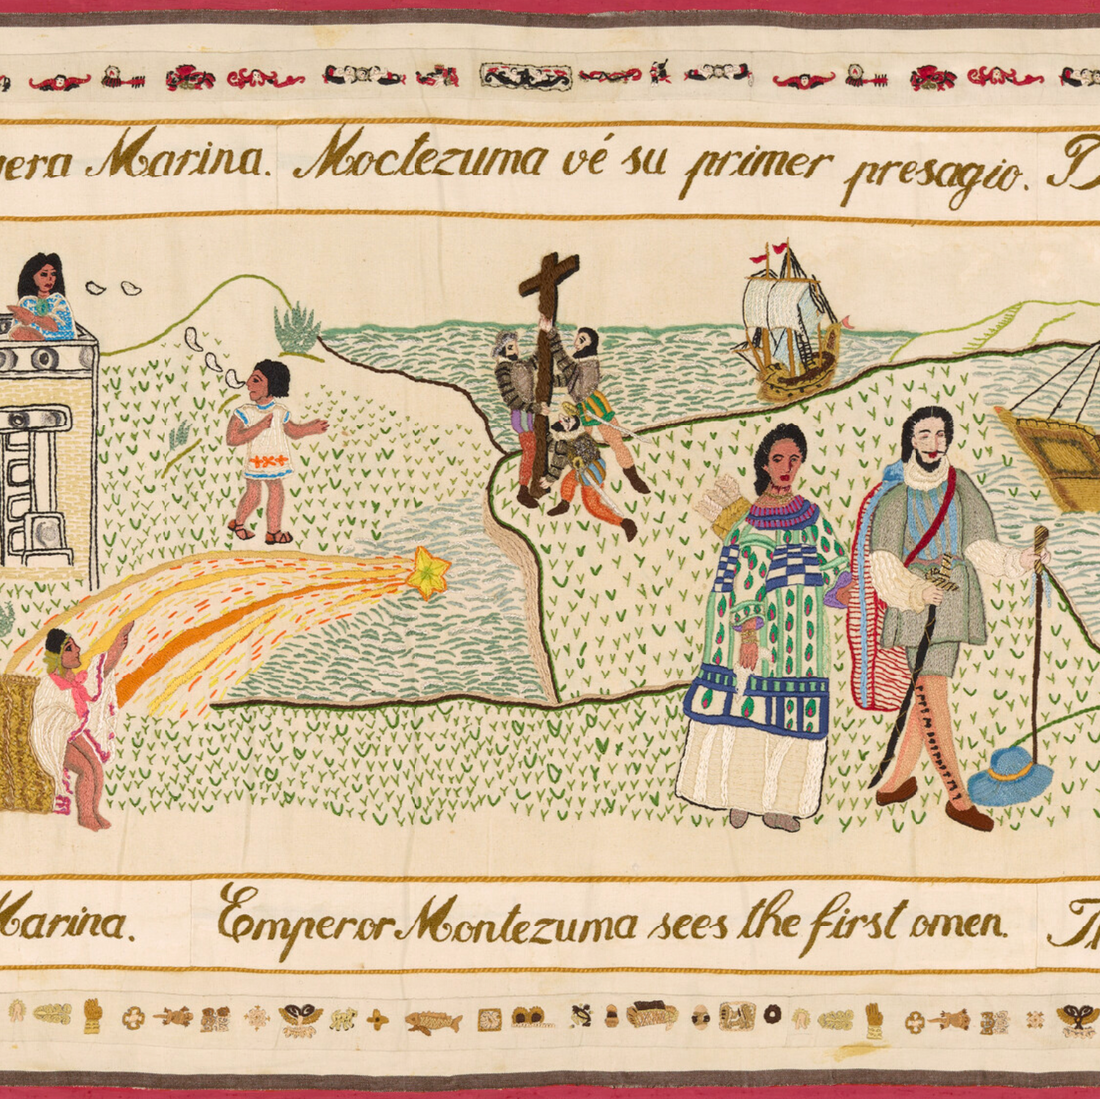 Marina. Moctezuma vé su primer presagio.
Marina. Emperor Montezuma sees the first omen.